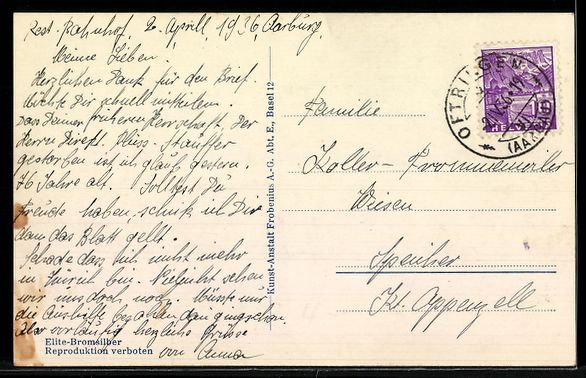 Rest. Bahnhof, 2. April 1936, Aarburg
Meine Lieben.
Herzlichen Dank für den Brief.
Möchte Dir schnell mitteilen.
Das Deiner früheren Herrschaft. Der
Herrn Direkt. Stauffer
gestorben ist ich glaub gestern.
76 Jahre alt. Solltest Du
Freude haben, schick ich Dir
dann das Blatt gell.
Schade dass ich nicht mehr
in Zürich bin. Vielleicht sehen
wir uns doch noch. Müsste nur
die Aushilfe bezahlen dann ging schon.
Aber vorläufig herzliche Grüsse
von Anna
Elite-Bromsilber
Reproduktion verboten
Kunst-Anstalt Frobenius A.-G. Abt. E., Basel 12
Familie
Koller-
Wiesen
Speicher
Kt. Appenzell
OFTRINGEN
(AARGAU)
10
HELVETIA